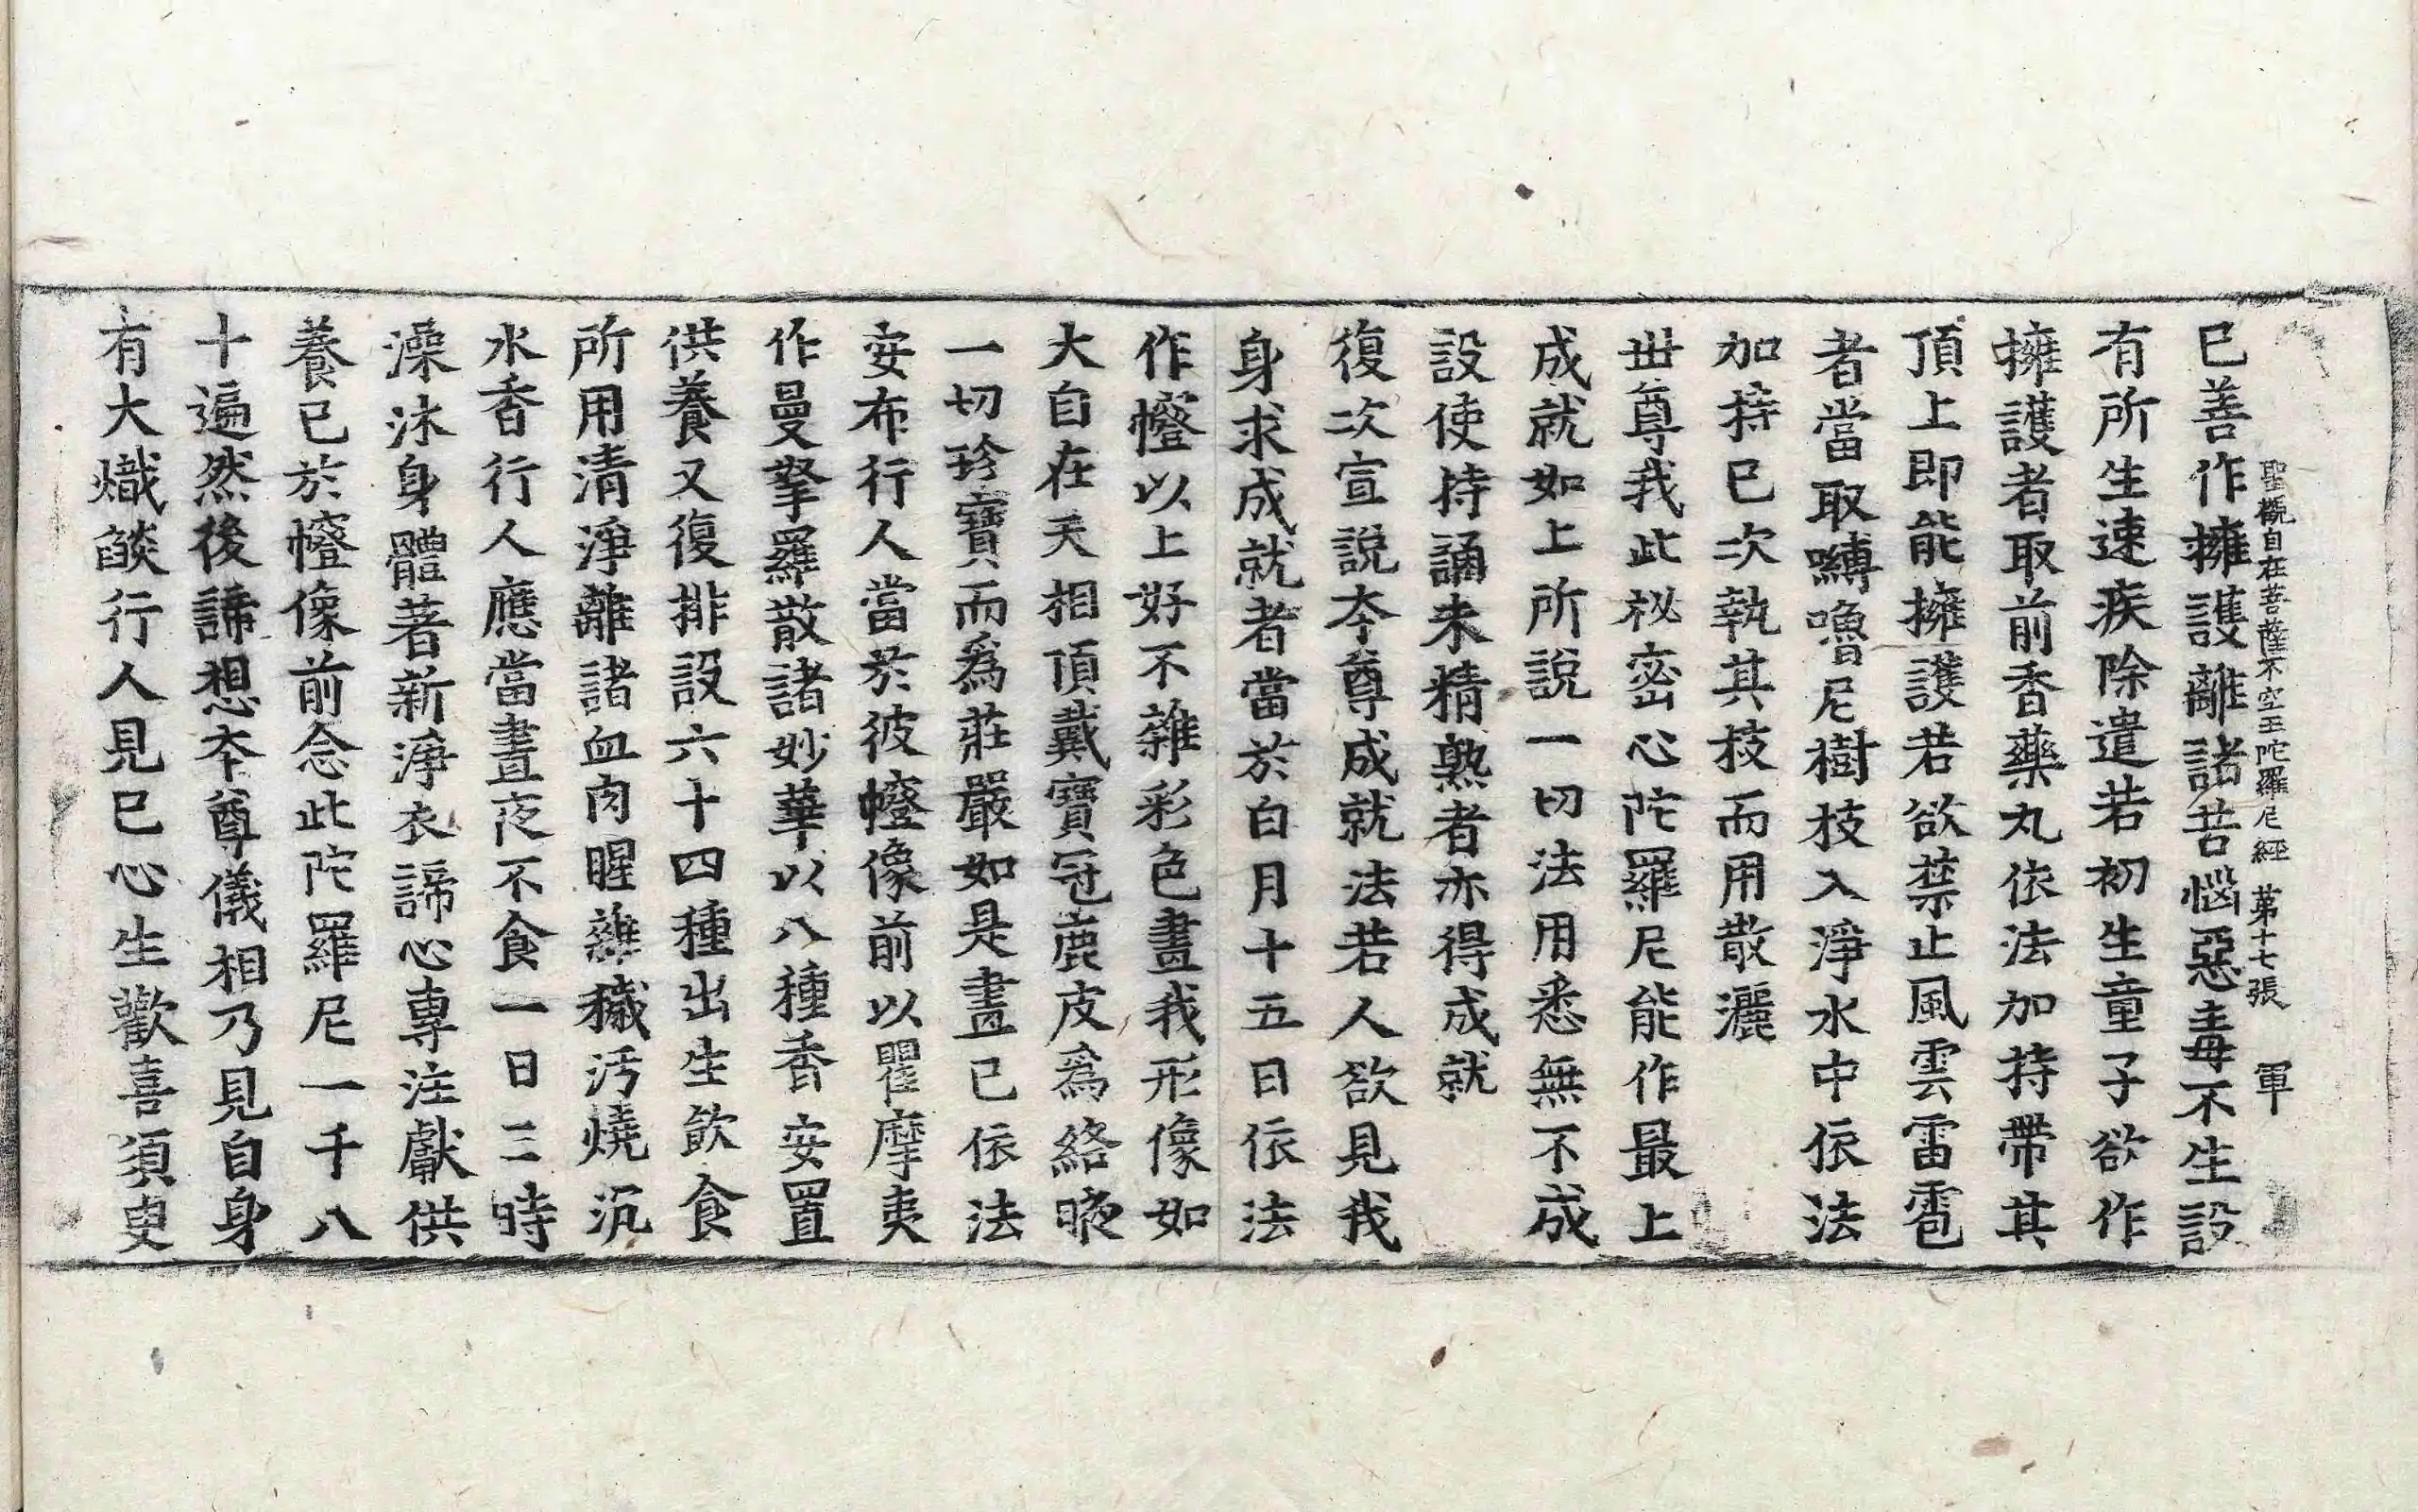 聖觀自在菩薩不空王陀羅尼經 第十七張 軍
已善作擁護離諸苦惱惡毒不生設
有所生速疾除遣若初生童子欲作
擁護者取前香藥丸依法加持帶其
頂上即能擁護若欲禁止風雲雷雹
者當取嚩嚕尼樹枝入淨水中依法
加持已次執其枝而用散灑
世尊我此祕密心陀羅尼能作最上
成就如上所說一切法用悉無不成
設使持誦未精熟者亦得成就
復次宣說本尊成就法若人欲見我
身求成就者當於白月十五日依法
作㡧以上好不雜彩色畫我形像如
大自在天相頂戴寶冠鹿皮為絡腋
一切珍寶而為莊嚴如是畫已依法
安布行人當於彼㡧像前以瞿摩夷
作曼拏羅散諸妙華以八種香安置
供養又復排設六十四種出生飲食
所用清淨離諸血肉腥雜穢汚燒沉
水香行人應當晝夜不食一日三時
澡沐身體著新淨衣諦心專注獻供
養已於㡧像前念此陀羅尼一千八
十遍然後諦想本尊儀相乃見自身
有大熾燄行人見已心生歡喜須臾